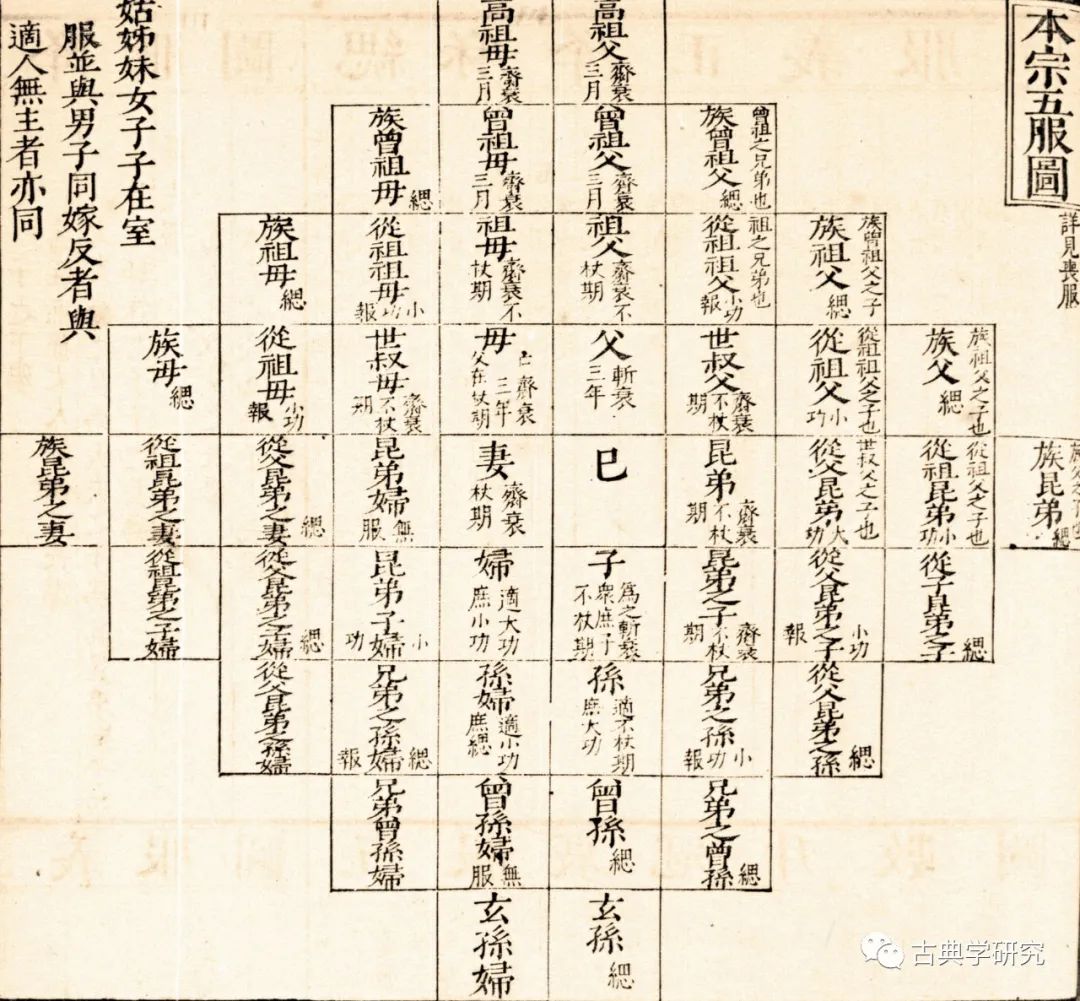 本宗五服圖
詳見喪服
高祖父
齋衰
三月
高祖母
齋衰
三月
曾祖之兄弟也
族曾祖父
緦
曾祖父
齋衰
三月
曾祖母
齋衰
三月
族曾祖母
緦
族曾祖父之子
族祖父
緦
祖之兄弟也
從祖祖父
小功
報
祖父
齋衰不
杖期
祖母
齋衰不
杖期
從祖祖母
小功
報
族祖母
緦
族祖父之子也
族父
緦
從祖祖父之子也
從祖父
小功
世叔父
齋衰
不杖
期
父
斬衰
三年
母
齋衰
三年
父在杖期
世叔母
齋衰
不杖
期
從祖母
小功
報
族母
緦
族昆弟
緦
從祖父之子也
從祖昆弟
小功
世叔父之子也
從父昆弟
大功
昆弟
齋衰
不杖
期
巳
妻
齋衰
杖期
昆弟婦
無服
從父昆弟之妻
緦
從祖昆弟之妻
族昆弟之妻
從子昆弟之子
緦
從父昆弟之子
小功
報
昆弟之子
齋衰
不杖
期
子
為之斬衰
衆庶子
不杖期
婦
適大功
庶小功
昆弟子婦
小功
從父昆弟之子婦
緦
從祖昆弟之子婦
從父昆弟之孫
緦
兄弟之孫
小功
報
孫
適不杖期
庶大功
孫婦
適小功
庶緦
兄弟之孫婦
緦
報
從父昆弟之孫婦
兄弟之曾孫
緦
曾孫
緦
曾孫婦
無服
兄弟曾孫婦
玄孫
緦
玄孫婦
姑姊妹女子子在室
服並與男子同嫁反者與
適人無主者亦同
古典学研究